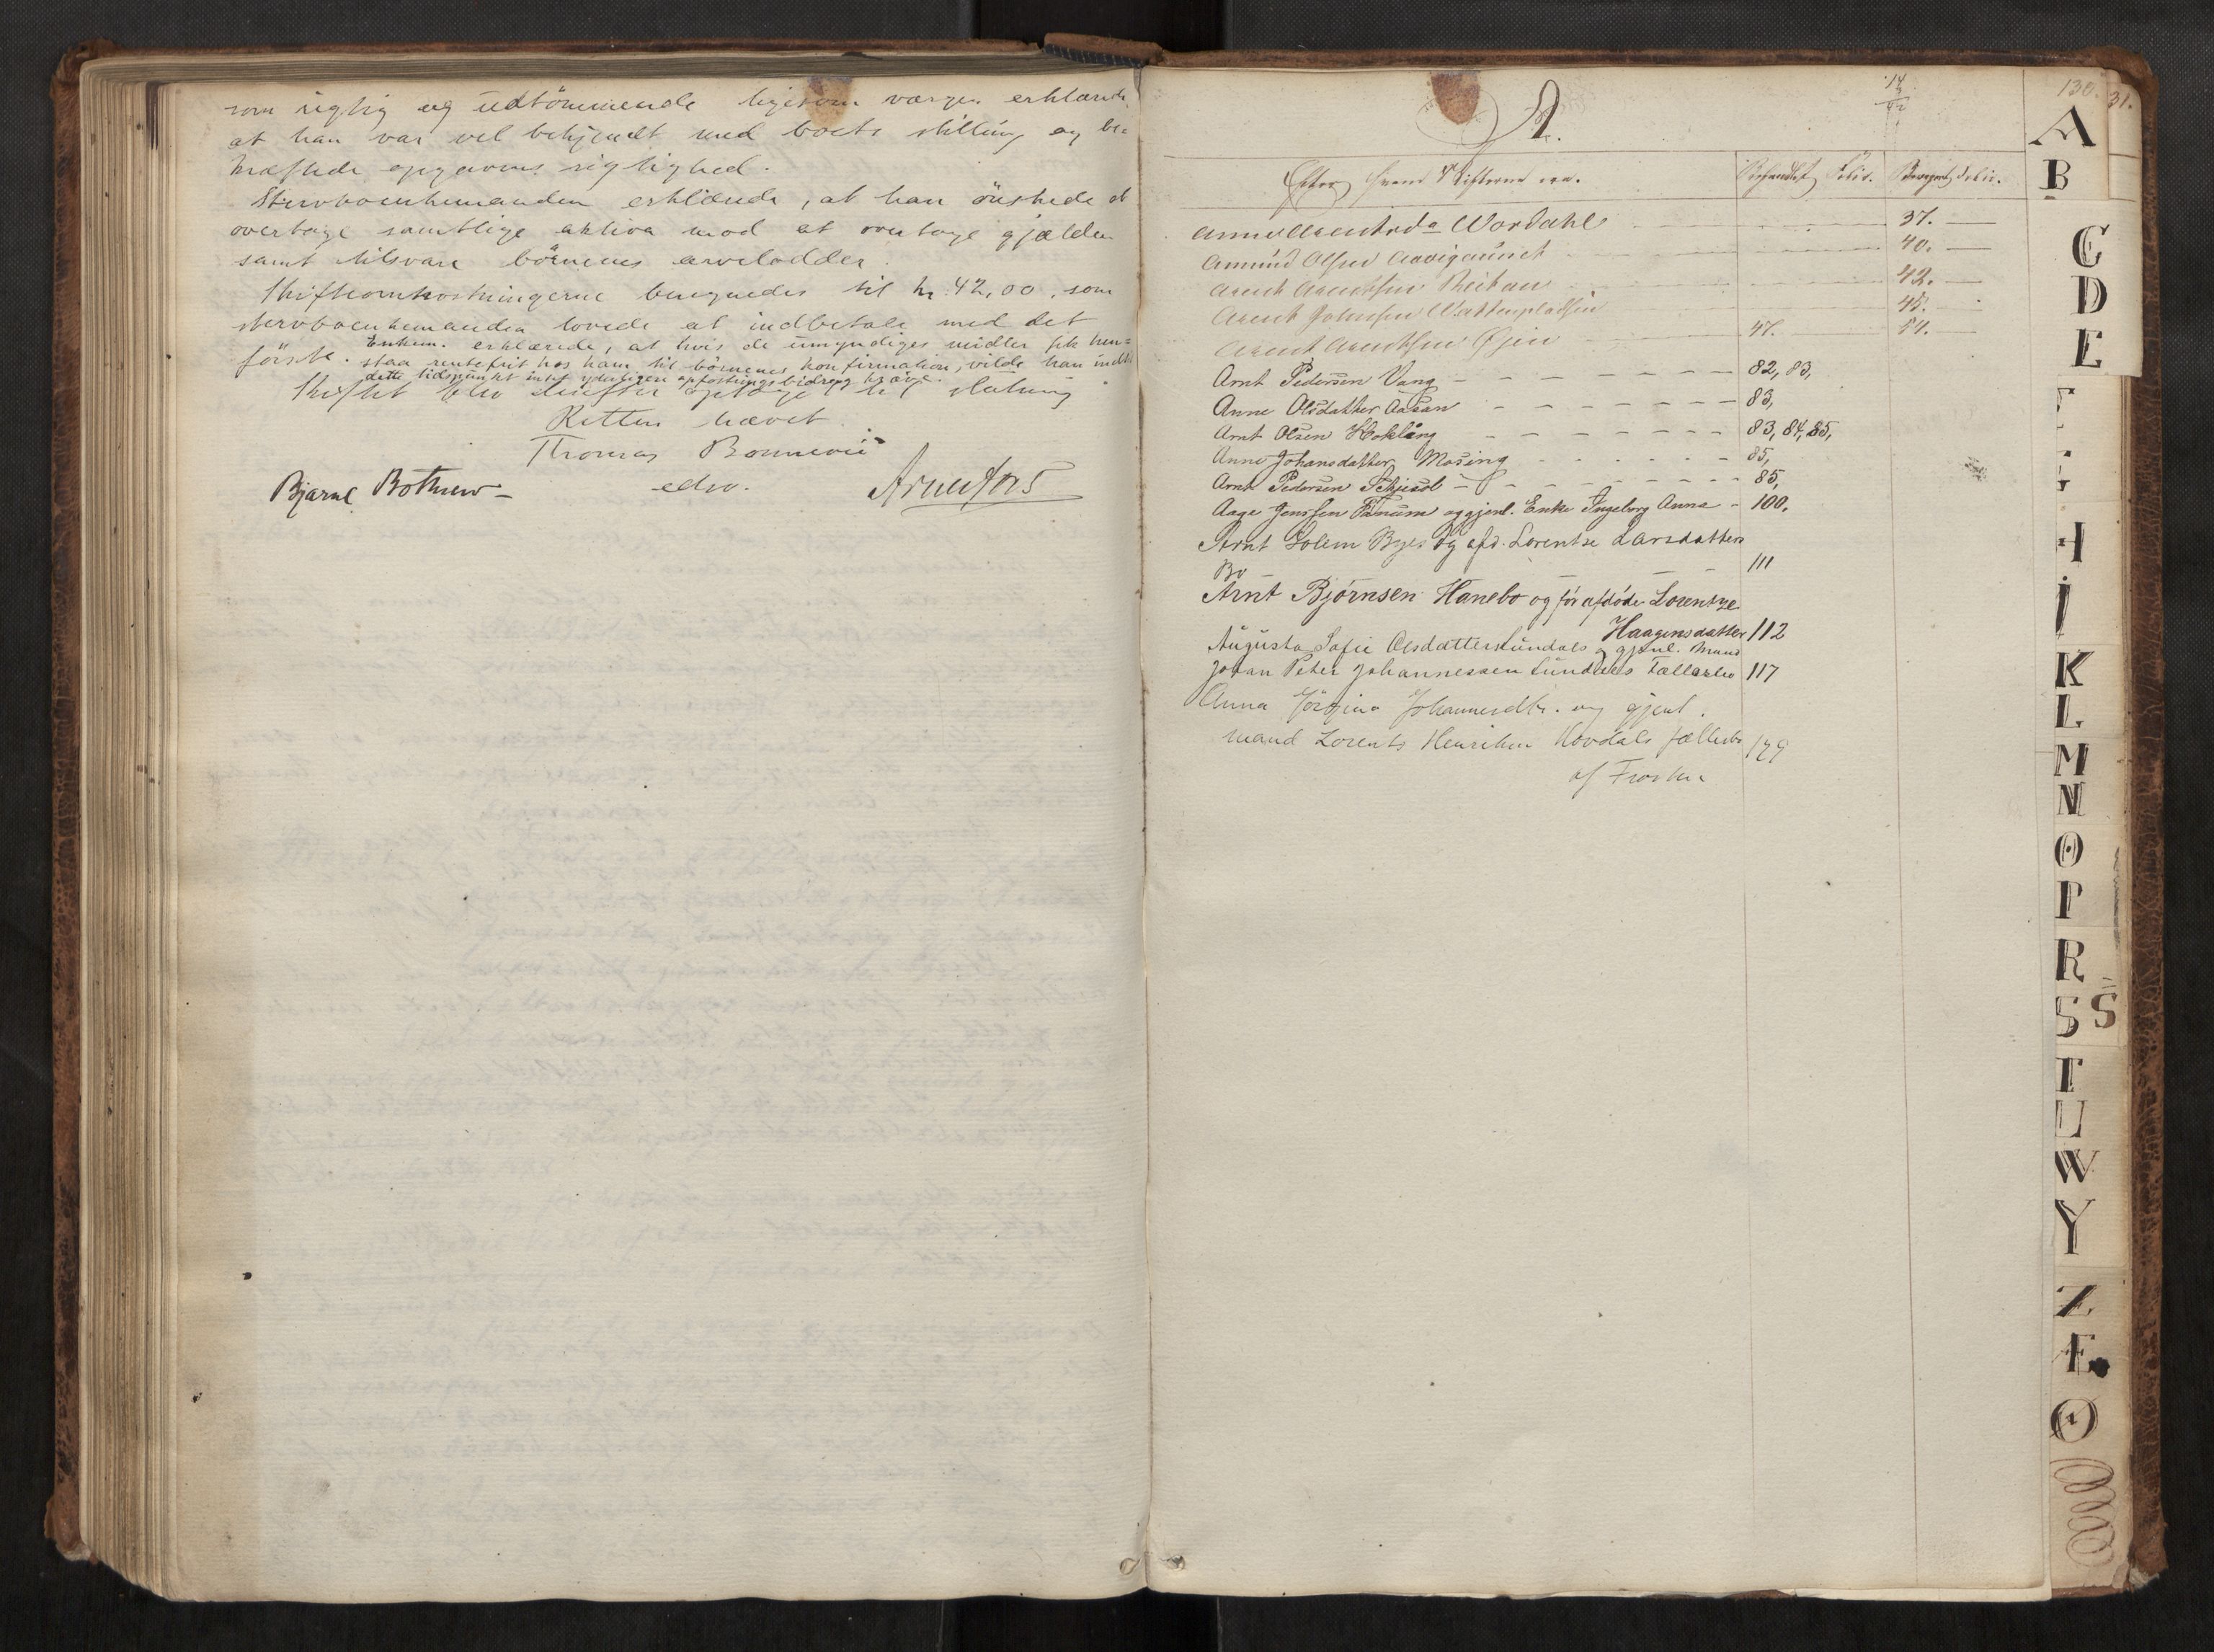 som rigtig og udtömmende ligesom værgen erklærede
at han var vel bekjendt med boets stilling og be-
kræftede opgavens rigtighed.
Stervboenkemanden erklærede, at han önskede at
overtage samtlige aktiva mod at overtage gjælden
samt tilsvare börnenes arvelodder.
Skifteomkostningerne beregnedes til kr. 42,00, som
stervboenkemanden lovede at indbetale med det
förste. Enkem. erklærede, at hvis de umyndiges midler fik hen-
staa rentefrit hos ham til börnenes konfirmation, vilde han indtil
dette tidspunkt intet yderligere opfostringsbidrag kræve.
Skiftet blev derefter optaget til slutning
Retten hævet.
Thomas Bonnevie
edsv.
Bjarne Bothner
A.
Efter hvem Skifterne ere.
Behandlet Folio.
Beregnet Folio.
130.
31.
Anne Arentsda Wordahl 37.
Amund Olsen Aavigaunet 40.
Arent Arentsen Reitan 42.
Arent Johnsen Wattenpladsen 45.
Arent Arentsen Øjen 47. 54.
Arnt Pedersen Vang 82, 83,
Anne Olsdatter Aasan 83,
Arnt Olsen Hokling 83, 84, 85,
Anne Johansdatter Mosing 85,
Arnt Pedersen Schjesol 85,
Aage Jenssen Fånum og gjenl. Enke Ingeborg Anna 100.
Arnt Solem Byes og afd. Lorentse Larsdatters
Bo 111
Arnt Bjørnsen Hanebo og før afdøde Lorentze
Haagensdatter 112
Augusta Sofie Olsdatter Lundals og gjenl. Mand
Johan Peter Johannessen Lundals Fællesbo 117
Anna Jörgine Johannesdtr. og gjenl.
mand Lorents Henriksen Hovdals fællesbo 129
af Frosten
A
B
C
D
E
H
I
K
L
M
N
O
P
R
S S
T
U
W
Y
Z
Æ
Ø